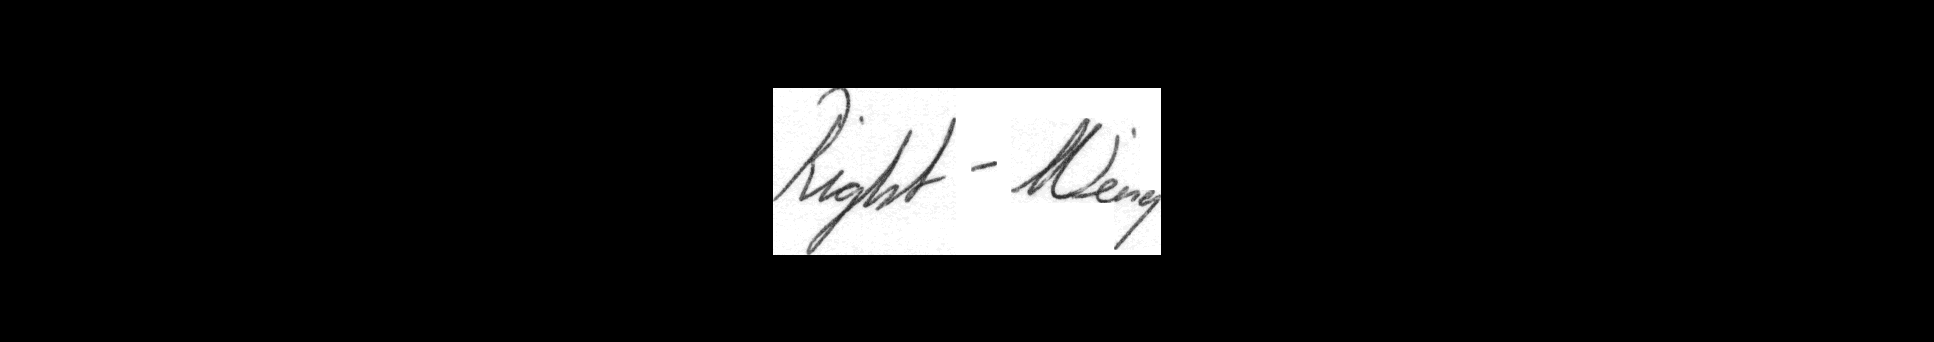 Right - Wing